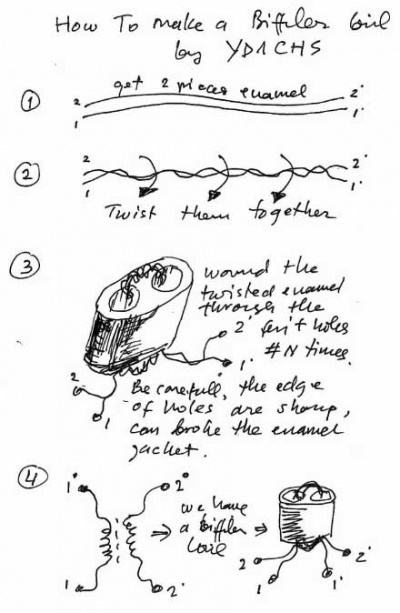 How To make a Biffiler Coil
by YD1CHS
①
get 2 pieces enamel
2 2'
1 1'
②
2 2'
1 1'
Twist them together
③
wound the
twisted enamel
through the
2 ferit holes
#N times.
1'
2
1
Be carefull, the edge
of holes are sharp,
can broke the enamel
jacket.
④
1' 2'
we have
a Biffiler
Coil
1 2'
2 2'
1 1'